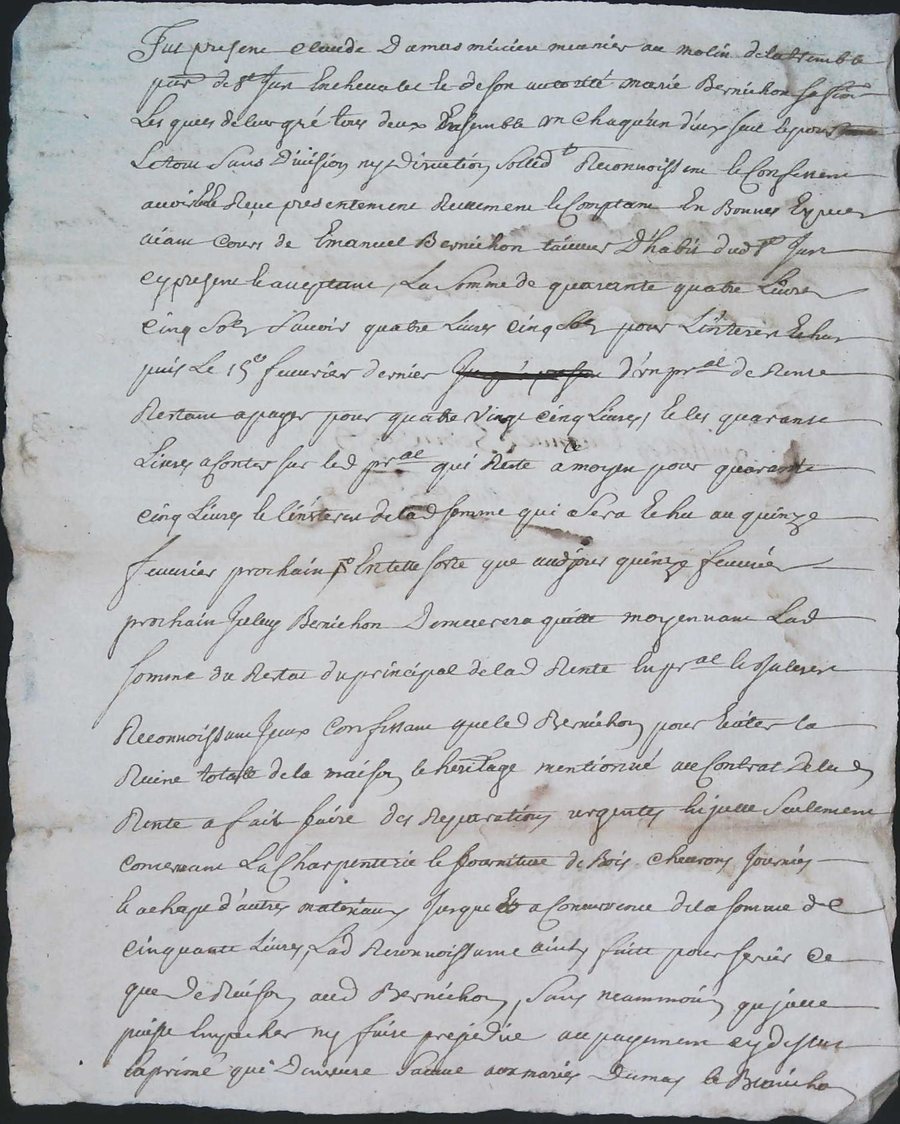 Fut present Claude Damas mérciere meunier au molin de la tremble
parr. de St Jean Enchevalec le de son autorité marie Bernichon sa fem
Les ques de leur gré tous deux Ensemble un Chaquun d'eux seul le pour
Le tout Sans Division ny Discution sollid.t Reconnoissent le Confessent
avoir Reçu presentement Reellement le Comptant En Bonnes Especes
aiant Cours de Emanuel Bernichon tailleur D'habit dud St Jean
cy present le acceptant, La Somme de quarante quatre Livres
Cinq Sols Savoir quatre Livres Cinq Sols pour L'interet Echu
puis Le 15e fevrier dernier d'un pr.al de Rente
Restant a payer pour quatre vingt cinq Livres, le les quarante
Livres a Conter sur led pr.al qui Reste a moyen pour quarante
Cinq Livres le l'interet de lad somme qui Sera Echu au quinze
fevrier prochain En telle sorte que audjour quinze fevrier
prochain Iceluy Bernichon Demeurera quitte moyennant Lad
somme du Restat du principal de lad Rente En pr.al le Interet
Reconnoissant Iceux Confessant que led Bernichon pour Eviter la
Ruine totalle de la maison le heritage mentionné au Contrat de lad
Rente a fait faire des Reparations urgentes Icelle Seulement
Concernant La Charpenterie le fourniture de Bois chevrons Journées
le achapt d'autres materiaux Jusque a Concurrence de la somme de
Cinquante Livres, Lad Reconnoissance ainsy faitte pour servir ce
que De Raison aud Bernichon, Sans neammoin qu'jcelle
puisse Empecher ny faire prejudice au payement cy dessus
Exprimé qui Demeure aux mariés Dumas le Bernichon